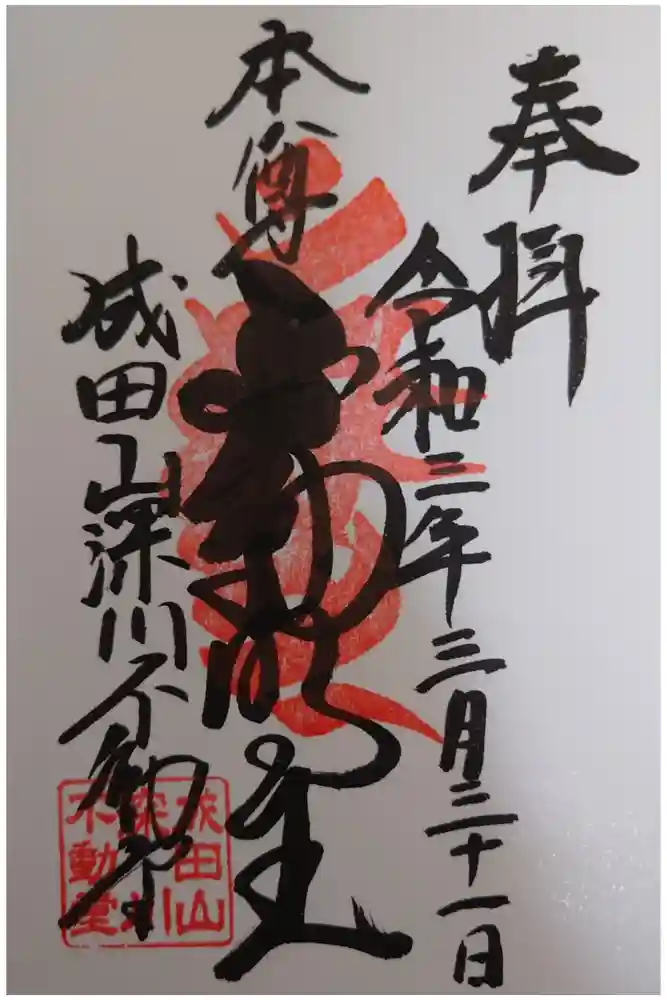 奉拝
令和三年三月三十一日
本尊
不動明王
成田山深川不動堂
成田山
深川
不動堂